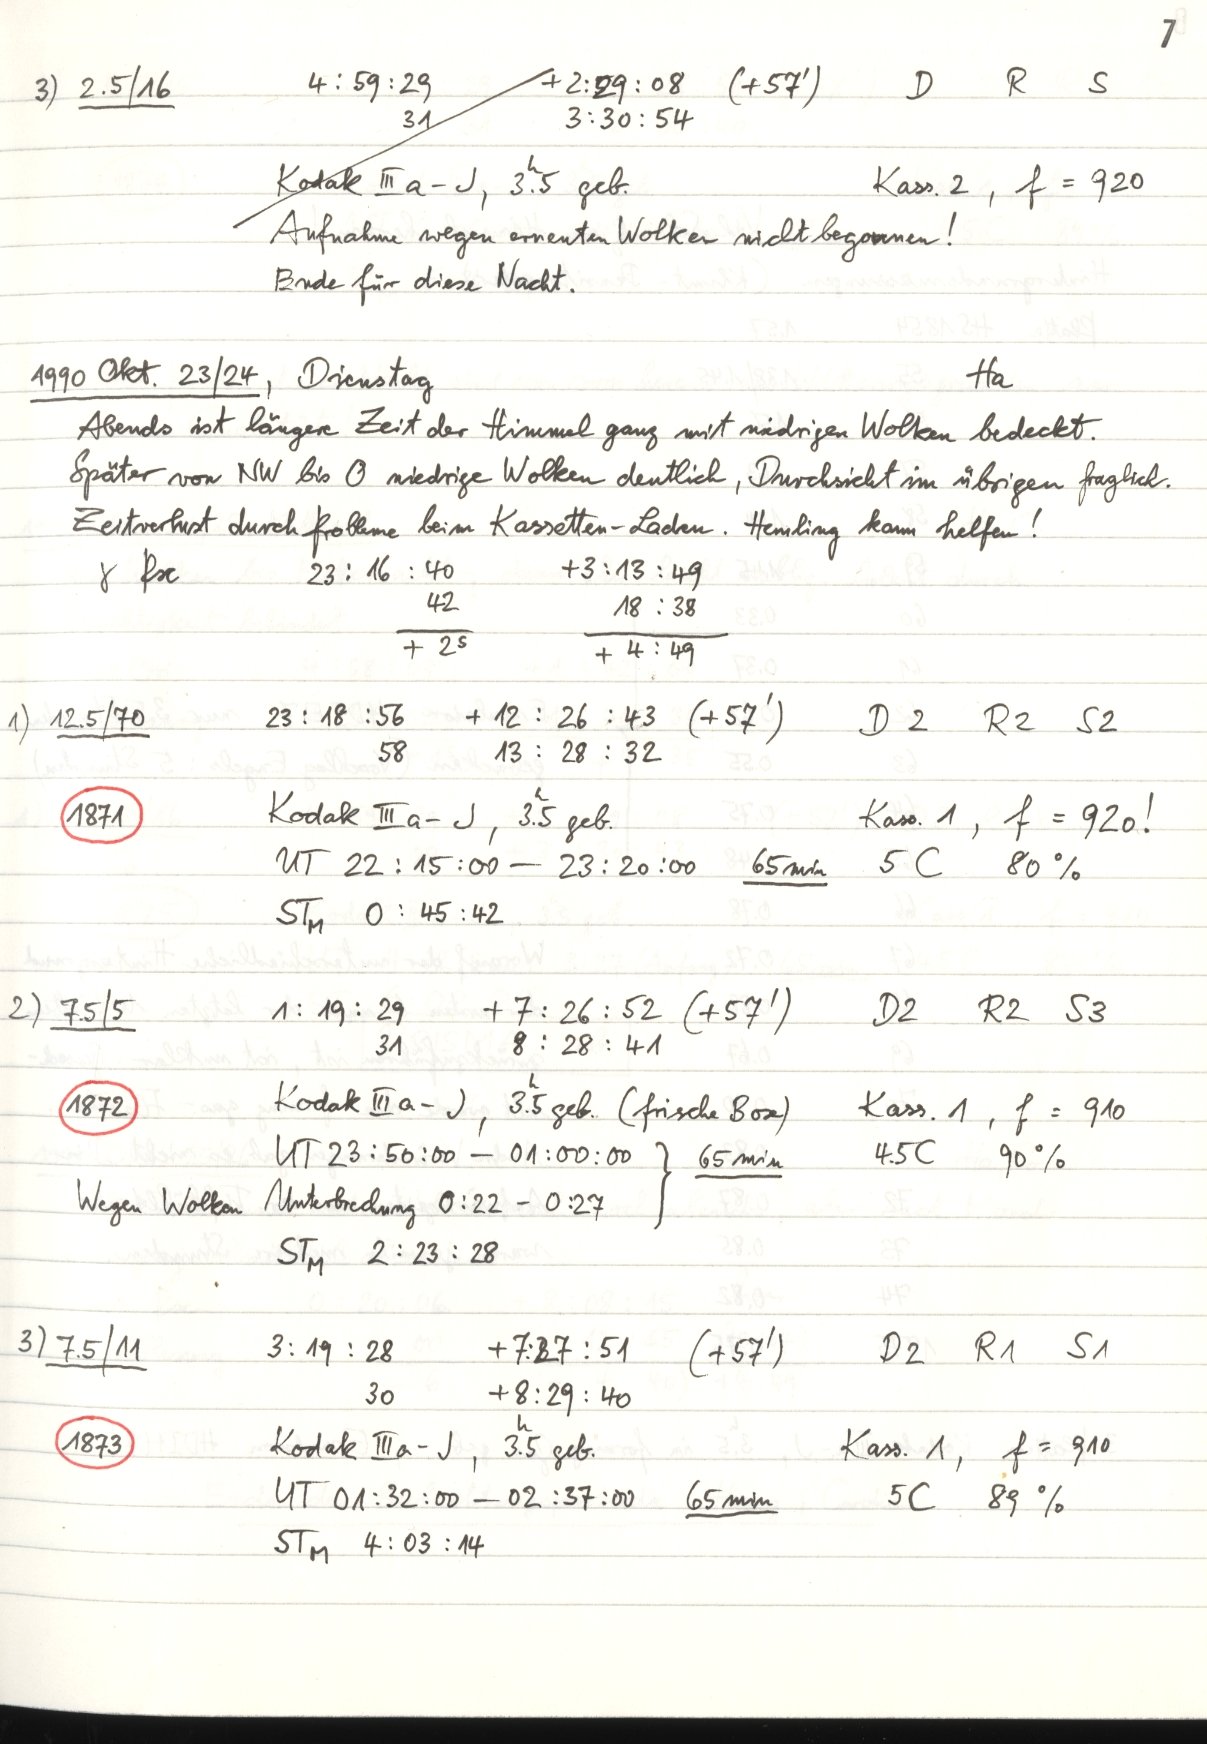 7
3) 2.5/16 4:59:29 +2:29:08 (+57') D R S
31 3:30:54
Kodak IIIa-J, 3h.5 geb. Kass. 2, f = 920
Aufnahme wegen erneuten Wolken nicht begonnen!
Ende für diese Nacht.
1990 Okt. 23/24, Dienstag Ha
Abends ist längere Zeit der Himmel ganz mit niedrigen Wolken bedeckt.
Später von NW bis O niedrige Wolken deutlich, Durchsicht im übrigen fraglich.
Zeitverlust durch Probleme beim Kassetten-Laden. Hemling kann helfen!
γ Psc 23:16:40 +3:13:49
42 18:38
+ 2s + 4:49
1) 12.5/70 23:18:56 + 12:26:43 (+57') D2 R2 S2
58 13:28:32
1871 Kodak IIIa-J, 3h.5 geb. Kass. 1, f = 920!
UT 22:15:00 — 23:20:00 65min 5C 80%
STM 0:45:42
2) 7.5/5 1:19:29 + 7:26:52 (+57') D2 R2 S3
31 8:28:41
1872 Kodak IIIa-J, 3h.5 geb. (frische Box) Kass. 1, f = 910
UT 23:50:00 — 01:00:00 } 65min 4.5C 90%
Wegen Wolken Unterbrechung 0:22 - 0:27
STM 2:23:28
3) 7.5/11 3:19:28 +7:27:51 (+57') D2 R1 S1
30 +8:29:40
1873 Kodak IIIa-J, 3h.5 geb. Kass. 1, f = 910
UT 01:32:00 — 02:37:00 65min 5C 89%
STM 4:03:14